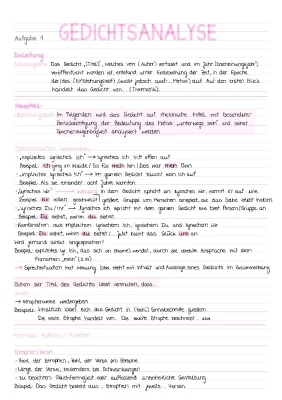 GEDICHTSANALYSE
Aufgabe 1
Einleitung
Das Gedicht „[Titel]", welches von (Autor) verfasst und im Jahr (Erscheinungsjahr)
veröffentlicht worden ist, entstand unter Einbeziehung der Zeit, in der Epoche
der/des (Entstehungszeit) (weist jedoch auch... Motive) auf. Auf den ersten Blick
handelt das Gedicht von... (Thematik).
Hauptteil:
Im Folgenden wird das Gedicht auf rhetorische Mittel mit besonderer
Berücksichtigung der Bedeutung des Motivs „unterwegs sein" und seiner
Epochenzugehörigkeit analysiert werden.
„explizites lyrisches Ich" → lyrisches Ich tritt offen auf.
Beispiel: Ich ging im Walde / So für mich hin / Das war mein Sinn
„implizites lyrisches Ich" → im ganzen Gedicht taucht kein Ich auf.
Beispiel: Als sie einander acht Jahre kannten
„lyrisches Wir" → im Gedicht spricht ein lyrisches Wir, vermit
Beispiel: Wir
„lyrisches Du / Ihr" → lyrisches Ich spricht mit dem ganzen Gedicht eine best. Person/Gruppe an
Beispiel: Du siehst, wohin du siehst
Kombination aus implizitem lyrischen Ich, lyrischem Du und lyrischem Wir
Beispiel: Du siehst, wohin du siehst /... jetzt lacht das Glück uns an
Wird jemand direkt angesprochen?
Beispiel: explizites lyr. Ich, das sich an (Name) wendet, durch die direkte Ansprache mit dem
Pronomen „mein" (V.10)
→ Sprechsituation hat Wirkung bzw. steht mit Inhalt und Aussage eines Gedichts im Zusammenhang
Schon der Titel des Gedichts lässt vermuten, dass...
→ strophenweise wiedergeben
Beispiele: Inhaltlich lässt sich das Gedicht in (Zahl) Sinnabschnitte gliedern.
Die erste Strophe handelt von... Die zweite Strophe beschreibt... usw.
Strophen/Verse:
- Zahl der Strophen, Zahl der Verse pro Strophe
- Länge der Verse, besonders bei Schwankungen
- zu beachten: Gleichförmigkeit oder auffallend uneinheitliche Gestaltung
Beispiel: Das Gedicht besteht aus... Strophen mit jeweils... Versen.